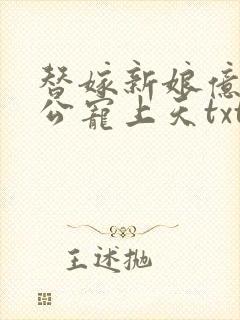 替嫁新娘亿
公宠上天txt
王述抛